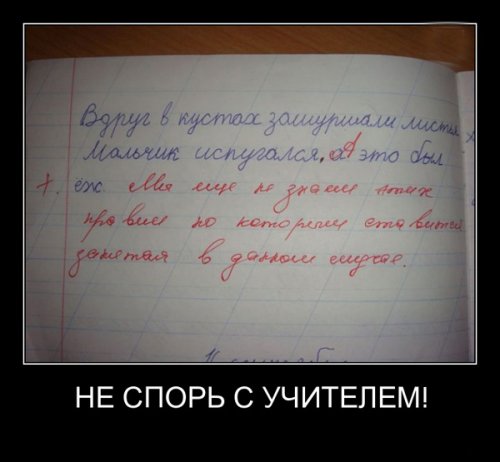 Вдруг в кустах зашуршали листья
Мальчик испугался, а А это был
ёж. Мы ещё не знаем этих
правил по которым ставится
запятая в данном случае.
НЕ СПОРЬ С УЧИТЕЛЕМ!